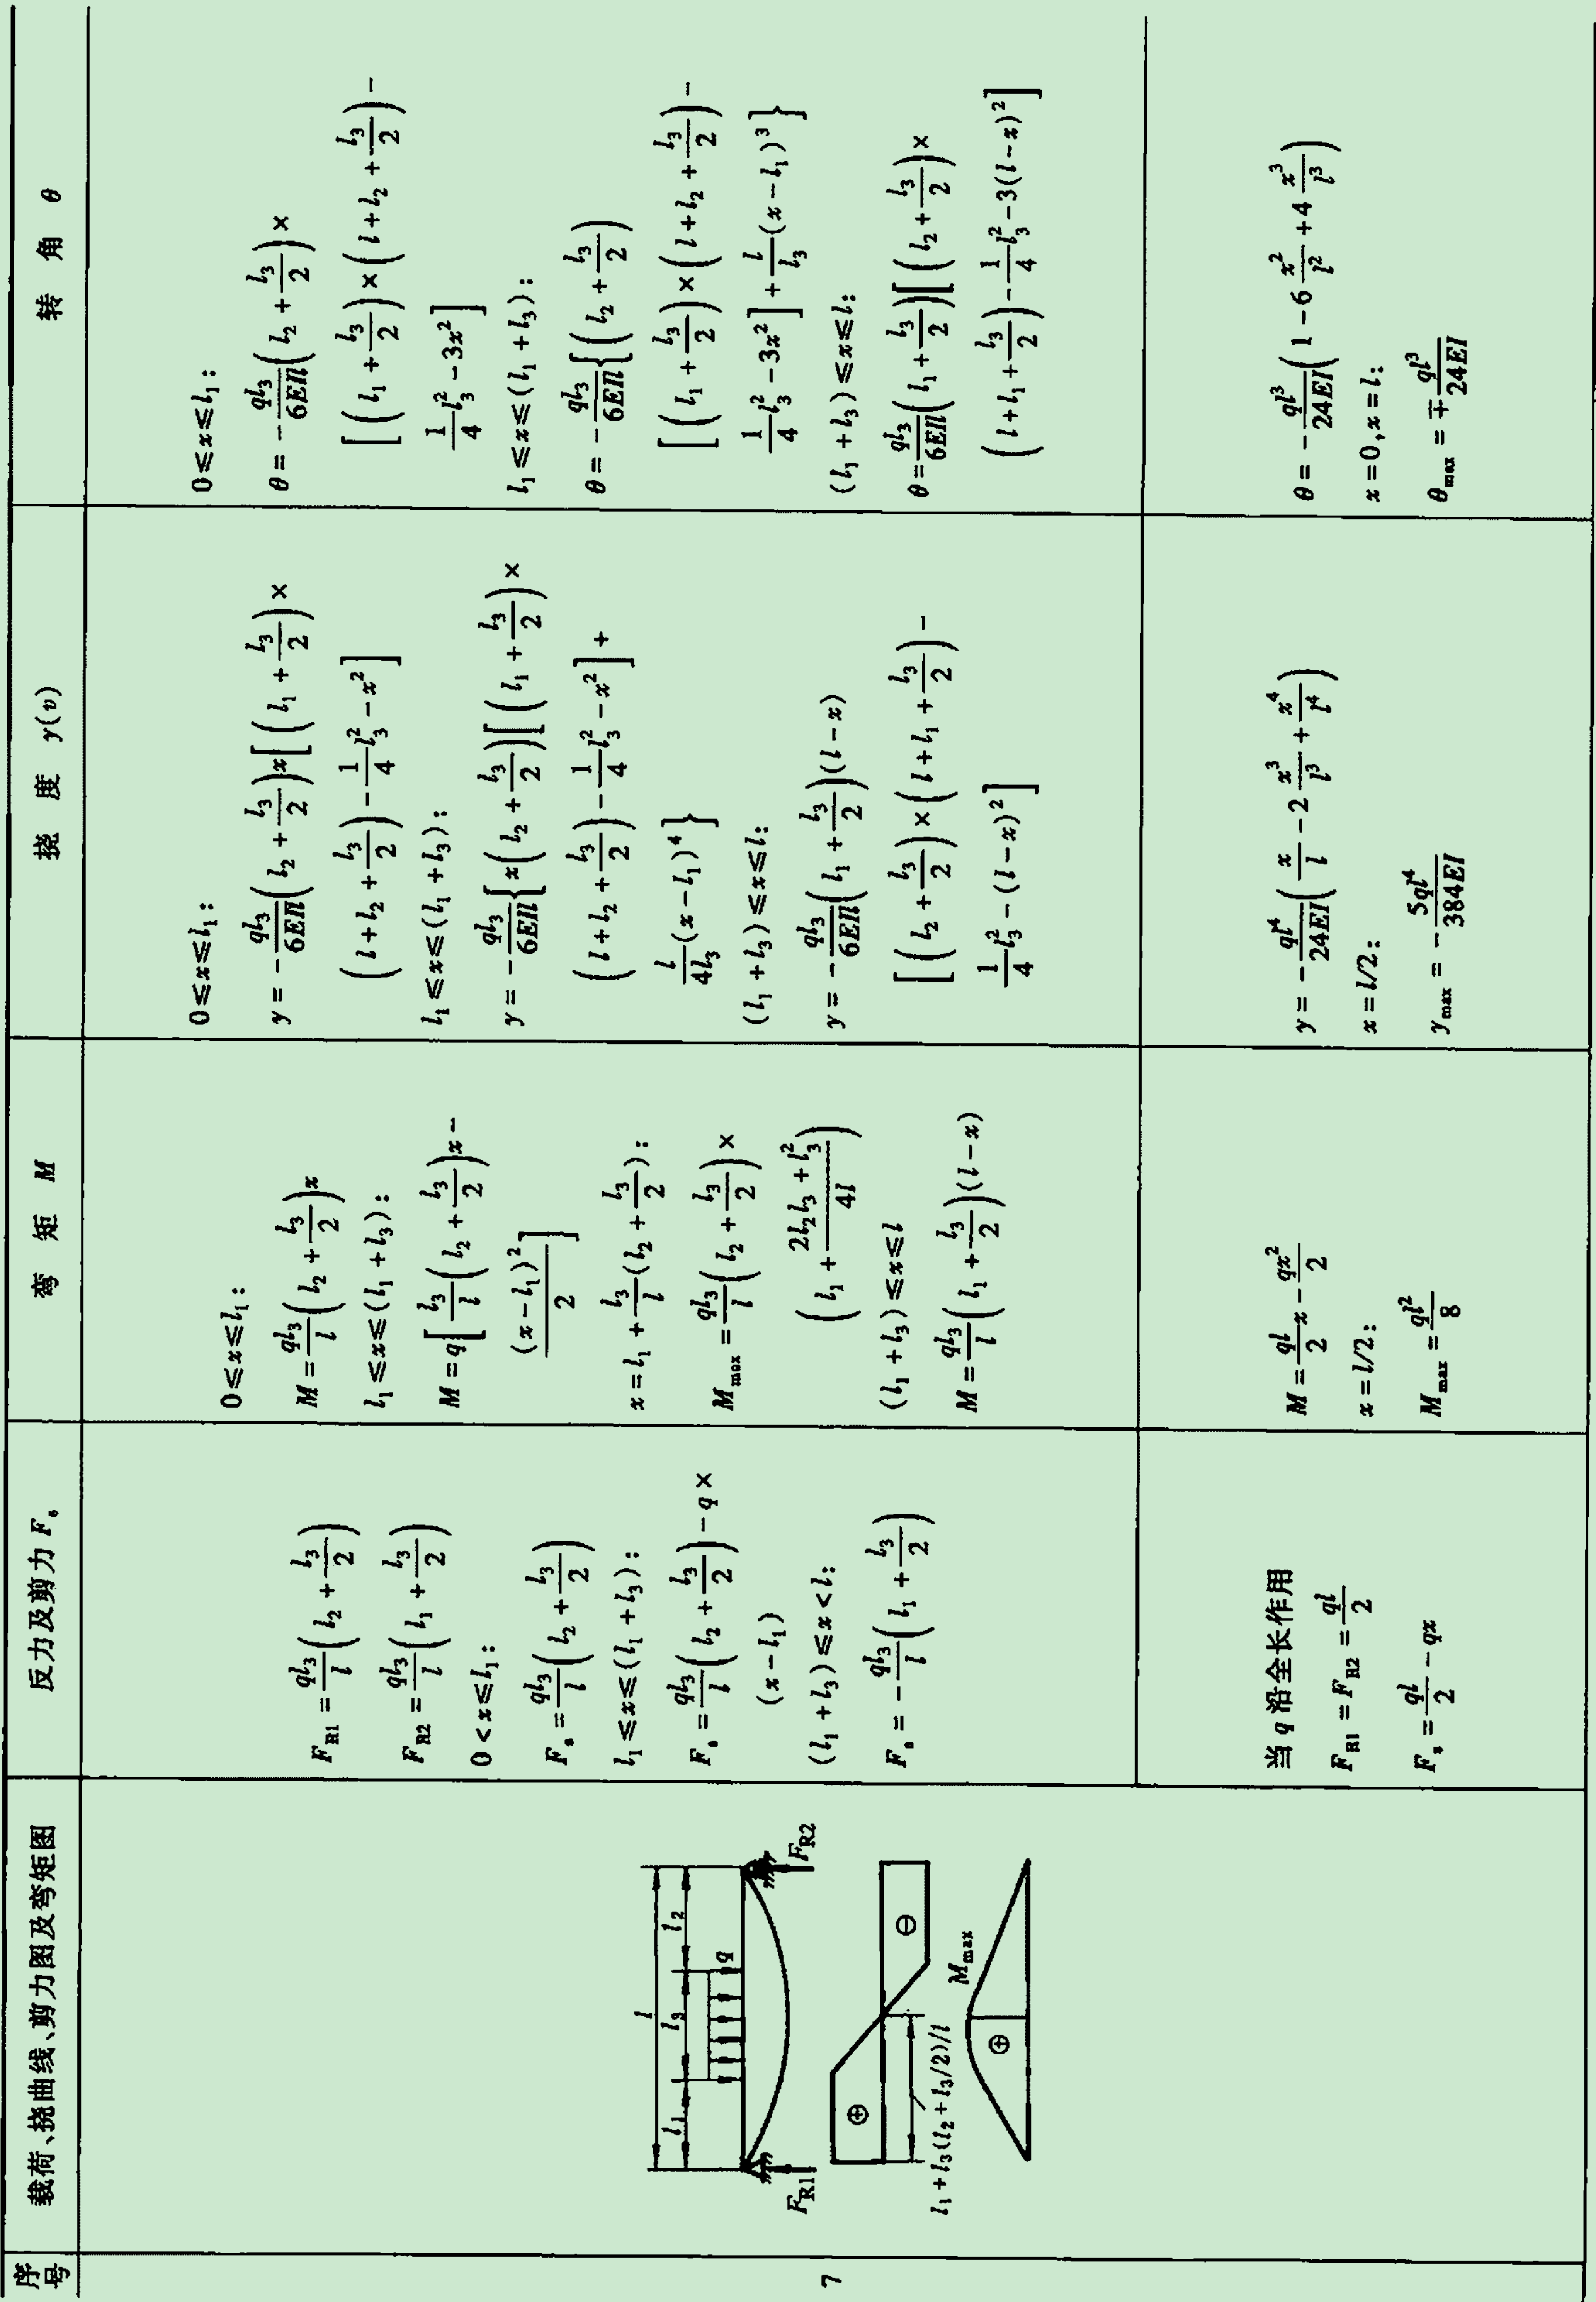 序号
载荷、挠曲线、剪力图及弯矩图
反力及剪力 F_s
弯 矩 M
挠 度 y(v)
转 角 θ
7
l
l_1
l_3
l_2
q
F_R1
F_R2
⊕
⊖
l_1 + l_3(l_2 + l_3/2)/l
M_max
⊕
F_R1 = ql_3/l (l_2 + l_3/2)
F_R2 = ql_3/l (l_1 + l_3/2)
0 < x ≤ l_1:
F_s = ql_3/l (l_2 + l_3/2)
l_1 ≤ x ≤ (l_1 + l_3):
F_s = ql_3/l (l_2 + l_3/2) - q ×
(x - l_1)
(l_1 + l_3) ≤ x < l:
F_s = - ql_3/l (l_1 + l_3/2)
0 ≤ x ≤ l_1:
M = ql_3/l (l_2 + l_3/2)x
l_1 ≤ x ≤ (l_1 + l_3):
M = q[l_3/l (l_2 + l_3/2)x -
(x - l_1)^2/2]
x = l_1 + l_3/l (l_2 + l_3/2):
M_max = ql_3/l (l_2 + l_3/2) ×
(l_1 + (2l_2l_3 + l_3^2)/4l)
(l_1 + l_3) ≤ x ≤ l
M = ql_3/l (l_1 + l_3/2)(l - x)
0 ≤ x ≤ l_1:
y = - ql_3/6EIl (l_2 + l_3/2)x[(l_1 + l_3/2) ×
(l + l_2 + l_3/2) - 1/4 l_3^2 - x^2]
l_1 ≤ x ≤ (l_1 + l_3):
y = - ql_3/6EIl {x(l_2 + l_3/2)[(l_1 + l_3/2) ×
(l + l_2 + l_3/2) - 1/4 l_3^2 - x^2] +
l/4l_3 (x - l_1)^4}
(l_1 + l_3) ≤ x ≤ l:
y = - ql_3/6EIl (l_1 + l_3/2)(l - x)
[(l_2 + l_3/2) × (l + l_1 + l_3/2) -
1/4 l_3^2 - (l - x)^2]
0 ≤ x ≤ l_1:
θ = - ql_3/6EIl (l_2 + l_3/2) ×
[(l_1 + l_3/2) × (l + l_2 + l_3/2) -
1/4 l_3^2 - 3x^2]
l_1 ≤ x ≤ (l_1 + l_3):
θ = - ql_3/6EIl {(l_2 + l_3/2)
[(l_1 + l_3/2) × (l + l_2 + l_3/2) -
1/4 l_3^2 - 3x^2] + l/l_3 (x - l_1)^3}
(l_1 + l_3) ≤ x ≤ l:
θ = ql_3/6EIl (l_1 + l_3/2)[(l_2 + l_3/2) ×
(l + l_1 + l_3/2) - 1/4 l_3^2 - 3(l - x)^2]
当 q 沿全长作用
F_R1 = F_R2 = ql/2
F_s = ql/2 - qx
M = ql/2 x - qx^2/2
x = l/2:
M_max = ql^2/8
y = - ql^4/24EI (x/l - 2 x^3/l^3 + x^4/l^4)
x = l/2:
y_max = - 5ql^4/384EI
θ = - ql^3/24EI (1 - 6 x^2/l^2 + 4 x^3/l^3)
x = 0, x = l:
θ_max = ∓ ql^3/24EI